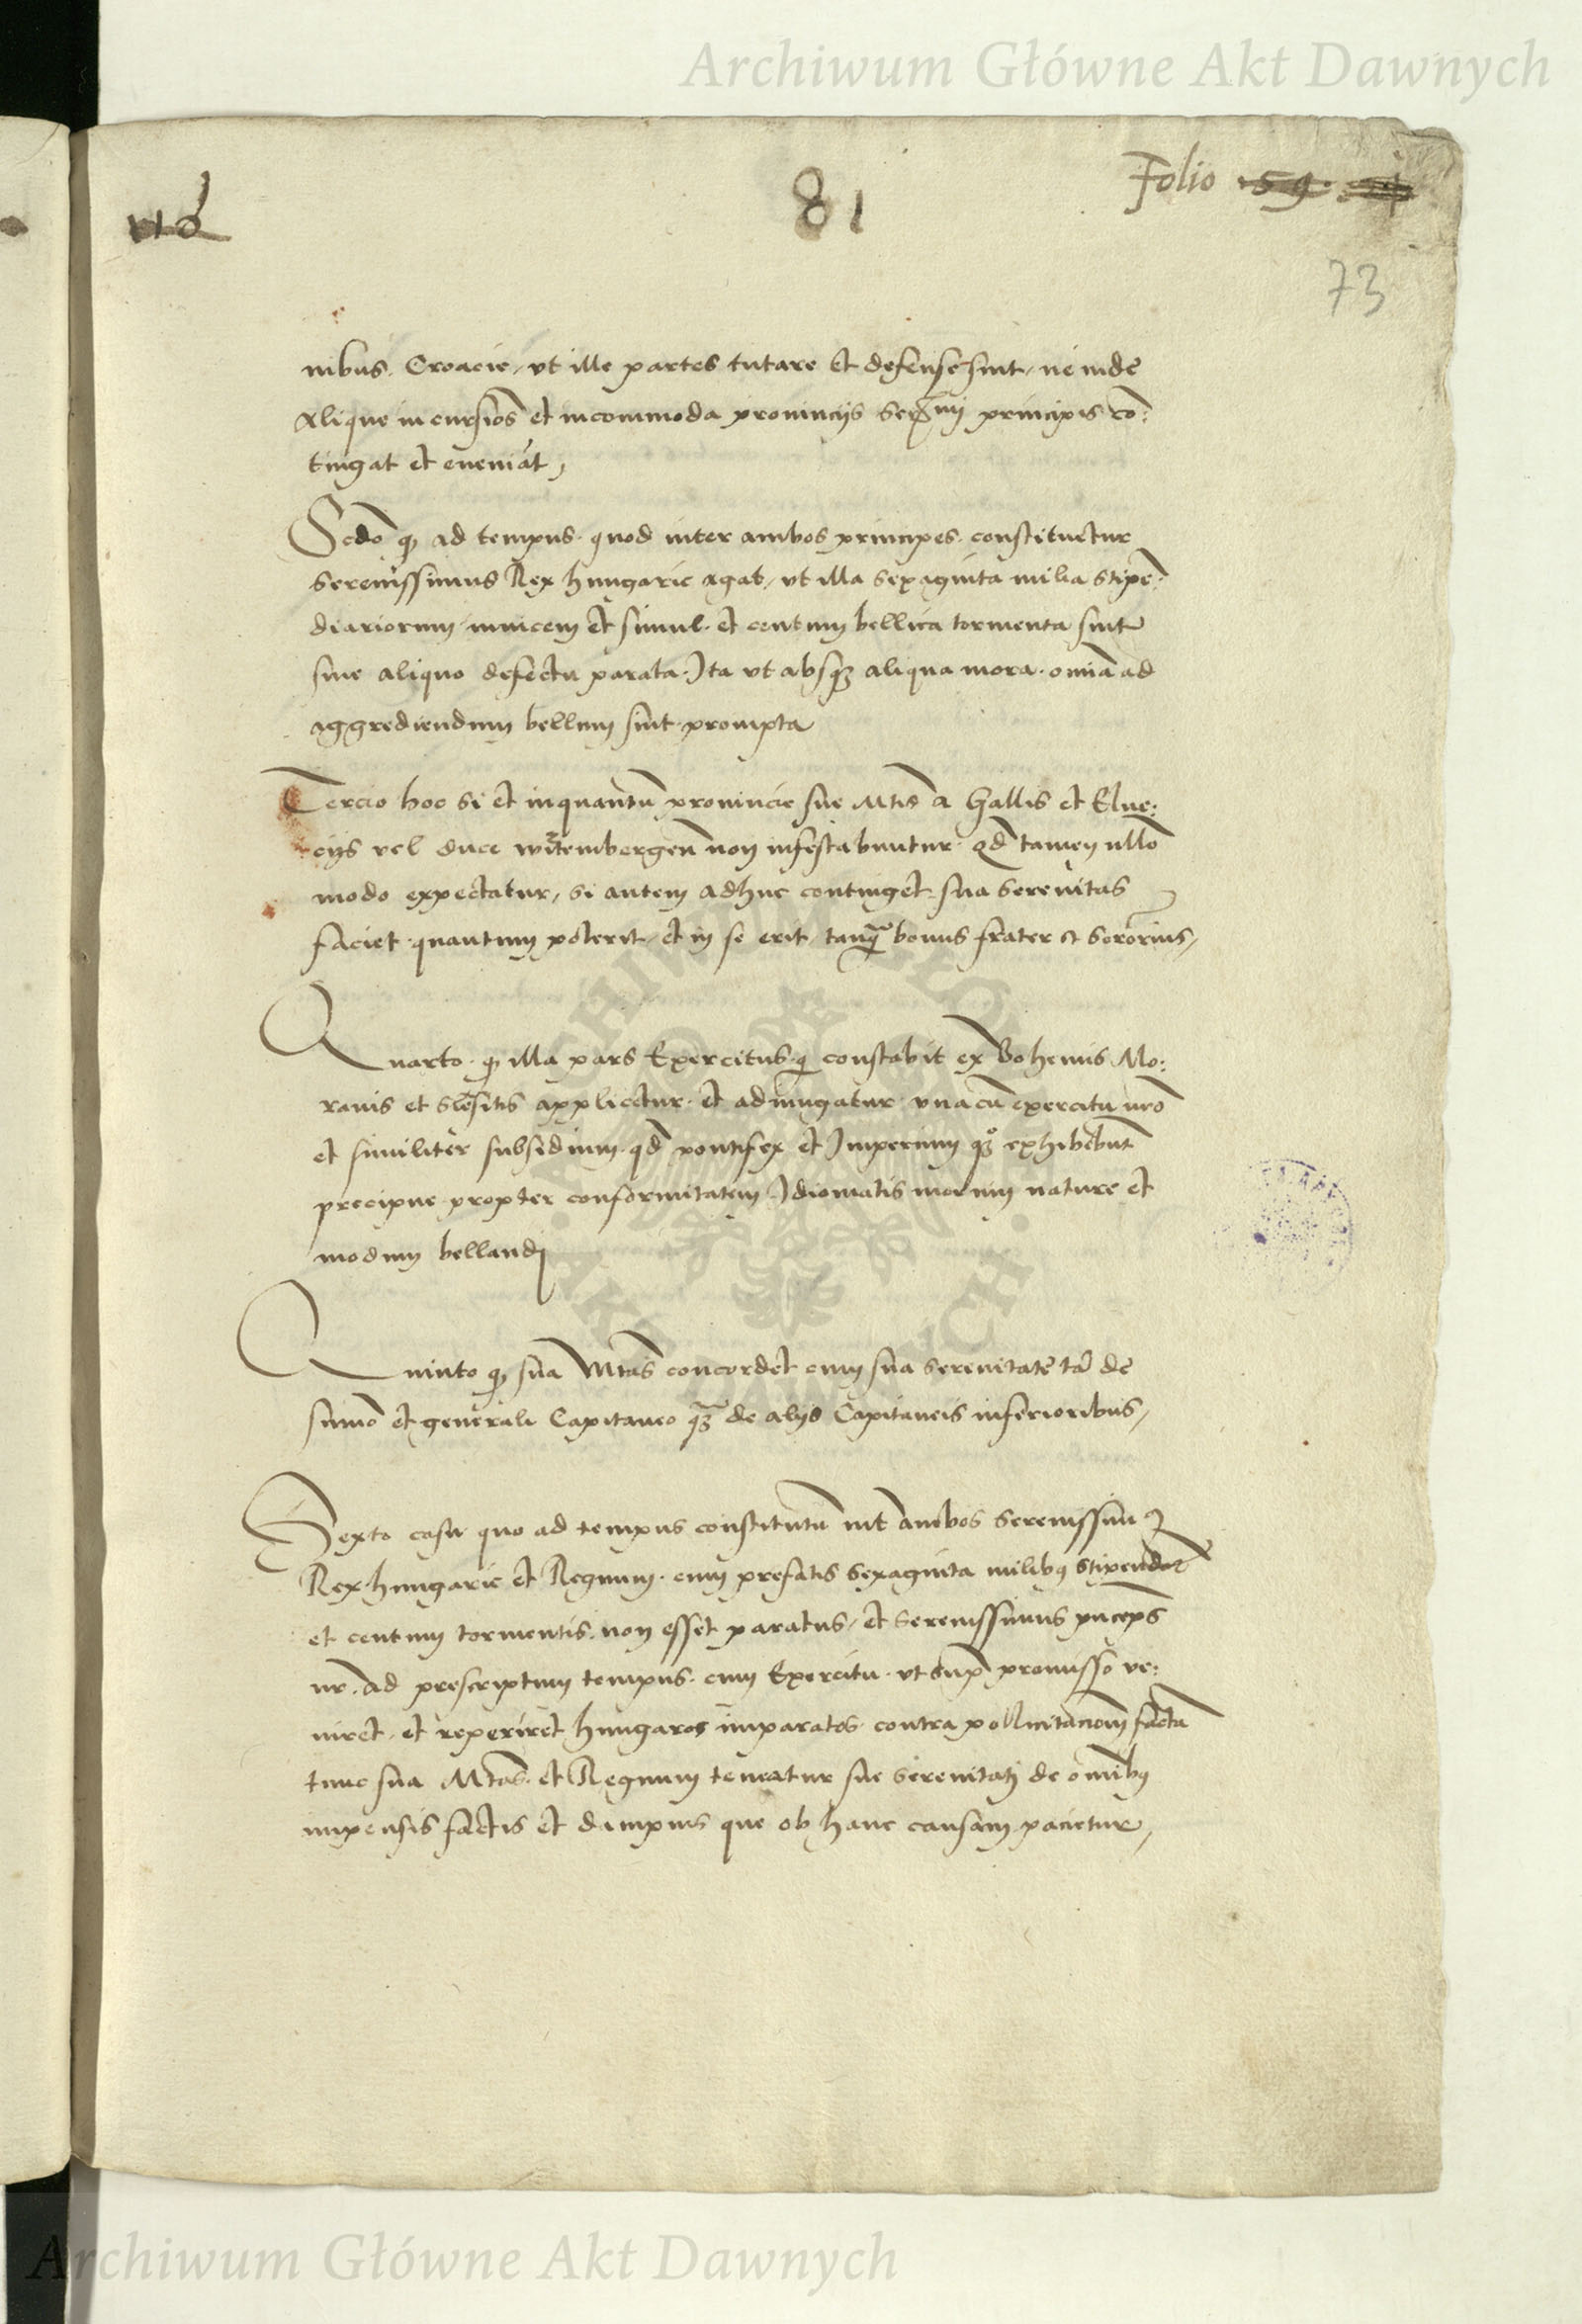 Archiwum Główne Akt Dawnych
Folio 59
81
73
nibus. Croacie, vt ille partes tutare et defense sint, ne inde
Alique incursioēs et incommoda provincijs Serᵐⁱ principis cō:
tingat et eveniāt,
Scdo q ad tempus. quod inter ambos principes. constituetur
Serenissimus Rex hungarie agat, vt illa sexaginta milia stipē:
diariorum invicem et simul. et centum bellica tormenta sint
sine aliquo defectu parata. Ita vt absqз aliqua mora. omīa ad
aggrediendum bellum sint prompta
Tercio hoc si et inquantū provincie sue Mtis a Gallis et Elue:
cijs vel duce wirtembergeñ non infestabuntur. qd tamen ullo
modo expectatur, si autem adhuc continget sua Serenitas
faciet quantum poterit, et in se erit, tanqᵃ bonus frater et Sororius,
Quarto. q illa pars Exercitus. q constabit ex Bohemis Mo:
ravis et Slesitis applicetur. et adiungatur vnacū exercitu nrō
et similiter subsidium. qd pontifex et Imperium qзº exhibebūt
precipue propter conformitatem Idiomatis morum nature et
modum bellandi
Quinto q sua Mtas concordet cum sua Serenitate tā de
sumō et generali Capitaneo qзᵃ de alijs Capitaneis inferioribus,
Sexto casu quo ad tempus constitutū int ambos Serenissim
Rex. hungarie et Regnum. cum prefatis sexaginta milibꝫ stipendar
et centum tormentis. non esset paratus, et Serenissimus pnceps
nr. Ad prescriptum tempus. cum Exercitu. vt sup promisso ve:
niret. et reperiret hungaros imparatos. contra pollicitacionem factā
tunc sua Mtas. et Regnum teneatur sue Serenitati de omībꝫ
impensis factis et dampnis que ob hanc causam pacietur,
Archiwum Główne Akt Dawnych